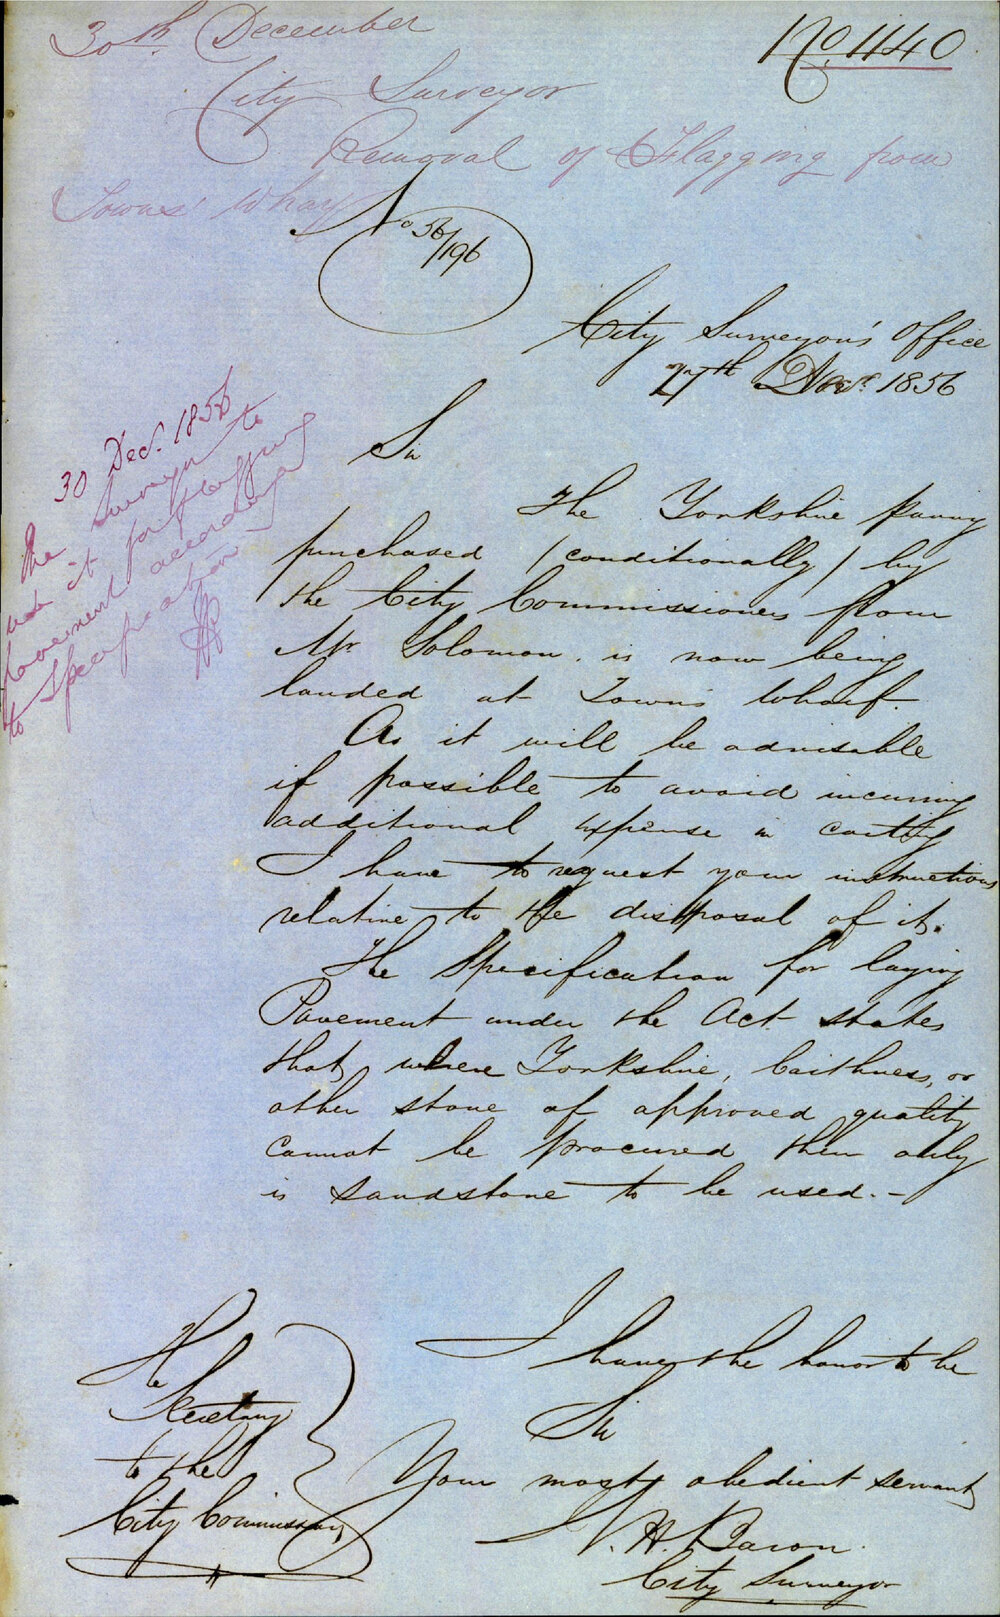 30th December
No. 1140
City Surveyor
Removal of Flagging from
Towns' Wharf
No 56/196
City Surveyor's Office
27th Decr. 1856
Sir
The Yorkshire paving
purchased (conditionally) by
the City Commissioners from
Mr Solomon is now being
landed at Towns Wharf.
As it will be advisable
if possible to avoid incurring
additional expense in carting
I have to request your instructions
relative to the disposal of it.
The Specification for laying
Pavement under the Act states
that where Yorkshire, Caithness, or
other stone of approved quality
cannot be procured then only
is sandstone to be used. –
30 Dec. 1856
The Surveyor to
use it for flagging
pavement according
to Specification –
I have the honor to be
Sir
Your most obedient servant
W. H. Baron
City Surveyor
The
Secretary
to the
City Commissioners